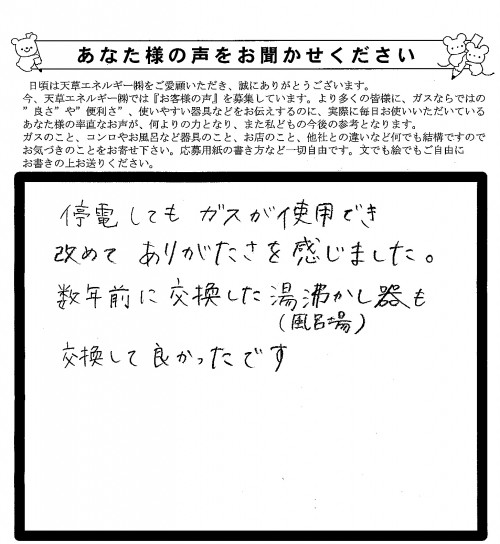 あなた様の声をお聞かせください
日頃は天草エネルギー㈱をご愛顧いただき、誠にありがとうございます。
今、天草エネルギー㈱では『お客様の声』を募集しています。より多くの皆様に、ガスならではの
”良さ”や”便利さ”、使いやすい器具などをお伝えするのに、実際に毎日お使いいただいている
あなた様の率直なお声が、何よりの力となり、また私どもの今後の参考となります。
ガスのこと、コンロやお風呂など器具のこと、お店のこと、他社との違いなど何でも結構ですので
お気づきのことをお寄せ下さい。応募用紙の書き方など一切自由です。文でも絵でもご自由に
お書きの上お送りください。
停電しても ガスが使用でき
改めて ありがたさを感じました。
数年前に交換した湯沸かし器も
(風呂場)
交換して良かったです